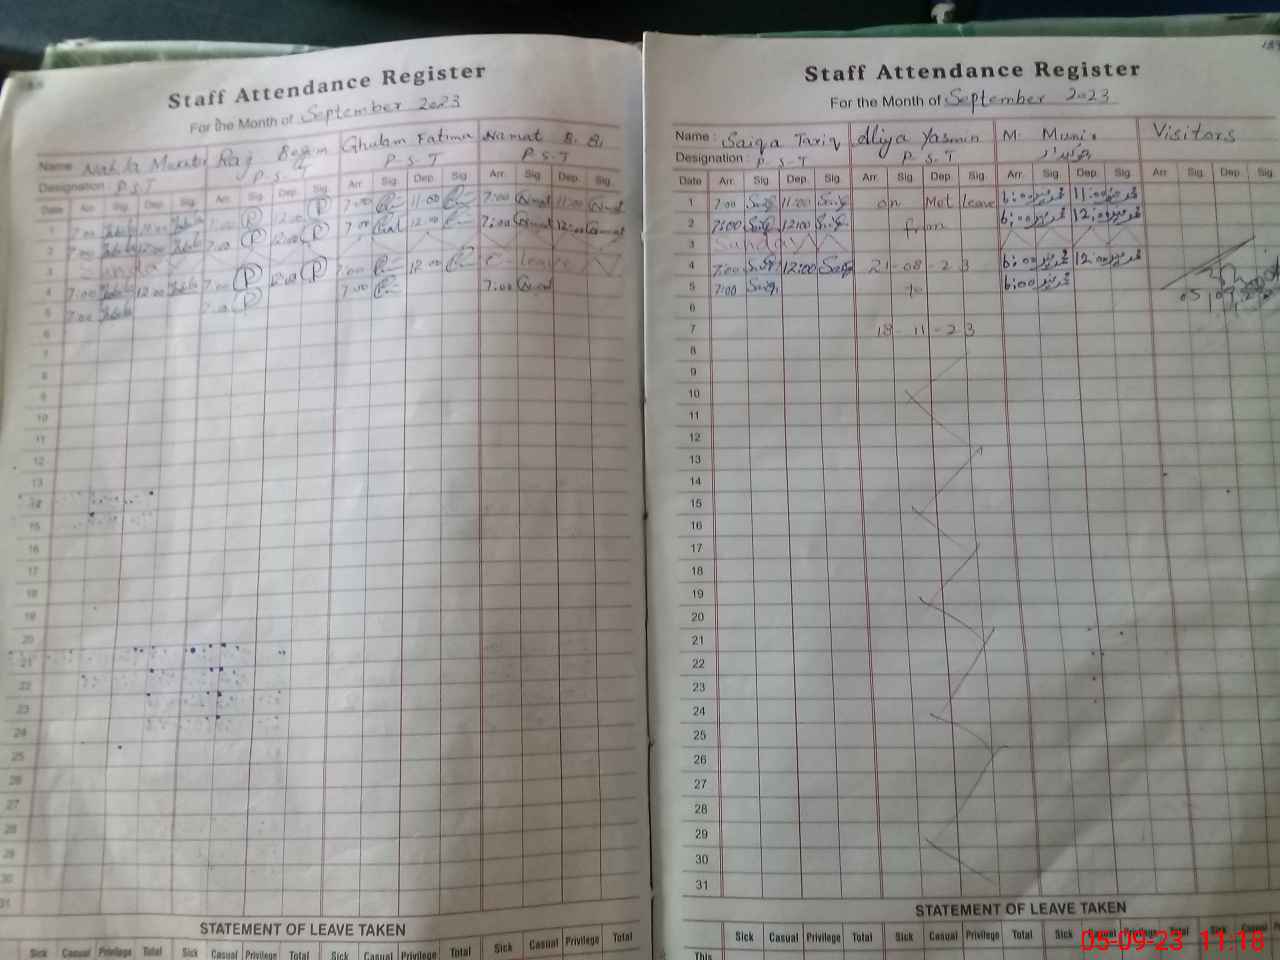 Staff Attendance Register
For the Month of September 2023
Name Raj Begum Ghulam Fatima Namat B.B.
Designation: P.S.T P.S.T P.S.T P.S.T
Date Arr. Sig. Dep. Sig. Arr. Sig. Dep. Sig. Arr. Sig. Dep. Sig. Arr. Sig. Dep. Sig.
1 7:00 11:00 7:00 12:00 P 7:00 11:00 7:00 11:00
2 7:00 12:00 7:00 P 12:00 P 7:00 12:00 7:00 12:00
3 Sunday
4 7:00 12:00 7:00 P 12:00 P 7:00 12:00 C-leave
5 7:00 7:00 P 7:00 7:00
6
7
8
9
10
11
12
13
14
15
16
17
18
19
20
21
22
23
24
25
26
27
28
29
30
31
STATEMENT OF LEAVE TAKEN
Sick Casual Privilege Total Sick Casual Privilege Total Sick Casual Privilege Total Sick Casual Privilege Total
Staff Attendance Register
For the Month of September 2023
Name: Saiqa Tariq Aliya Yasmin M. Munir Visitors
Designation: P.S.T P.S.T
Date Arr. Sig. Dep. Sig. Arr. Sig. Dep. Sig. Arr. Sig. Dep. Sig. Arr. Sig. Dep. Sig.
1 7:00 Saiqa 11:00 Saiqa on Mat leave 6:00 11:00
2 7:00 Saiqa 12:00 Saiqa from 6:00 12:00
3 Sunday
4 7:00 Saiqa 12:00 Saiqa 21-08-23 6:00 12:00
5 7:00 Saiqa to 6:00
6
7 18-11-23
8
9
10
11
12
13
14
15
16
17
18
19
20
21
22
23
24
25
26
27
28
29
30
31
STATEMENT OF LEAVE TAKEN
Sick Casual Privilege Total Sick Casual Privilege Total Sick Casual Privilege Total Sick Casual Privilege
This
05-09-23 11:18